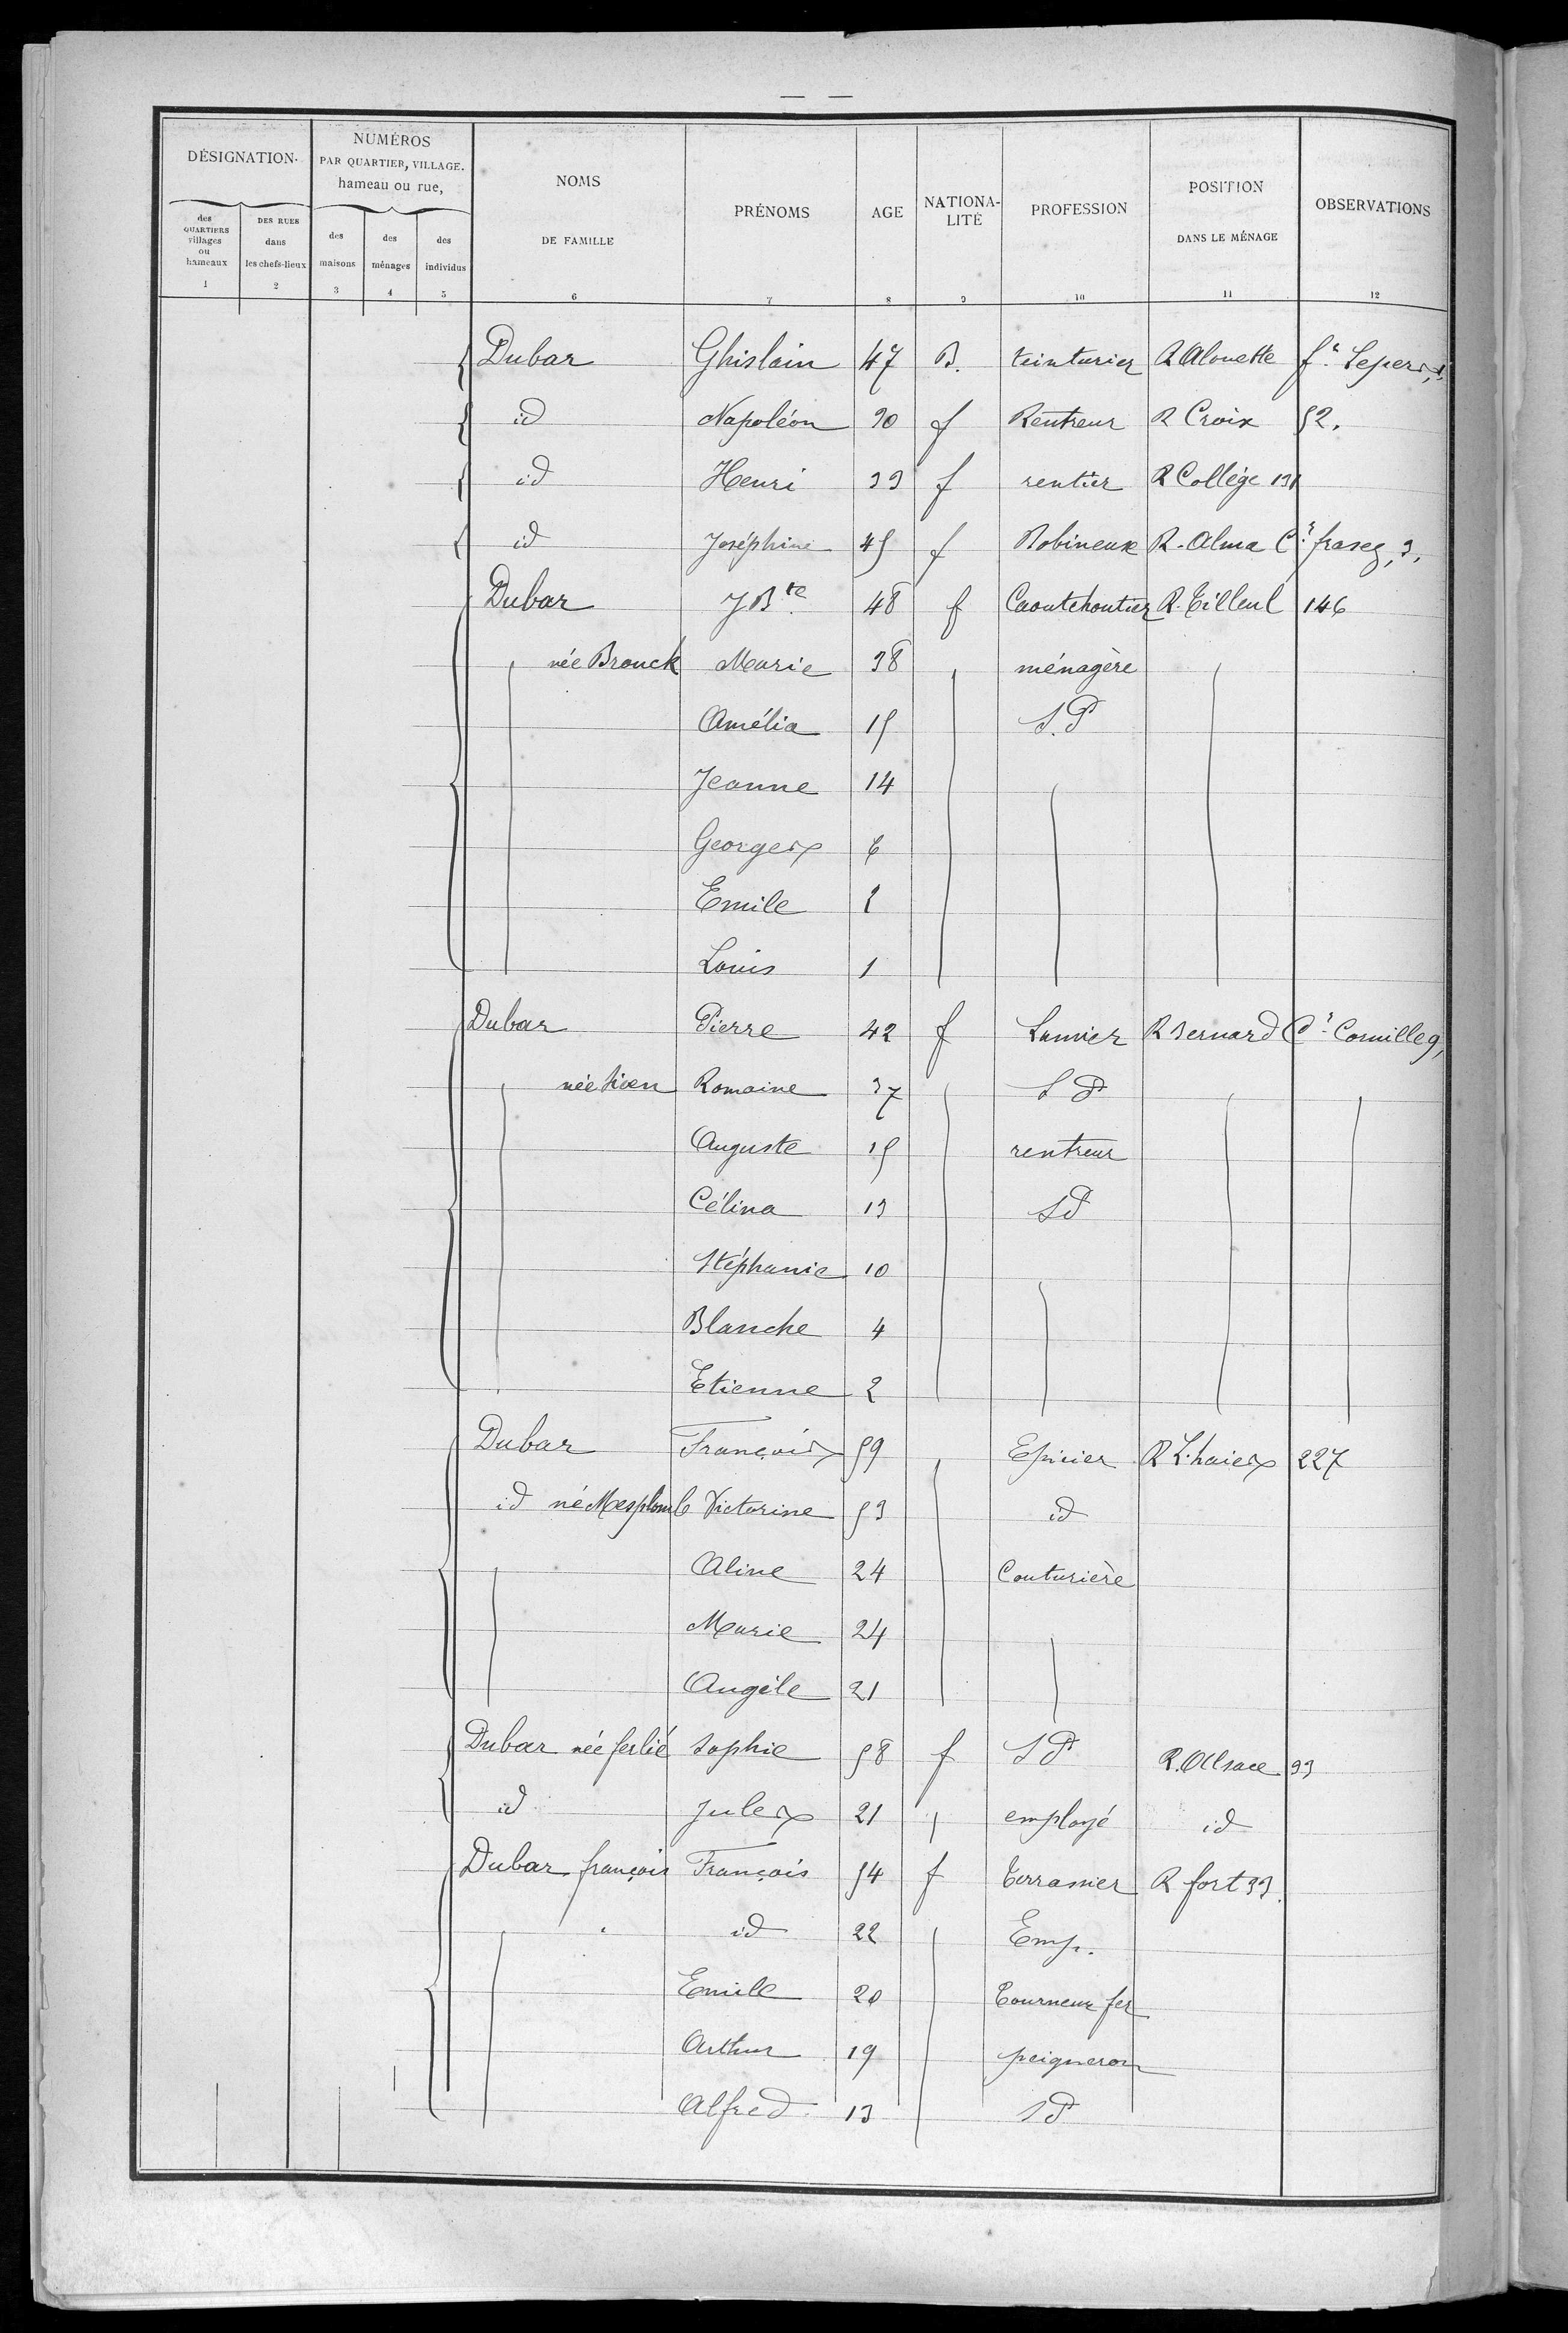 — —
DÉSIGNATION
NUMÉROS
PAR QUARTIER, VILLAGE.
hameau ou rue,
NOMS
DE FAMILLE
PRÉNOMS
AGE
NATIONA-
LITÉ
PROFESSION
POSITION
DANS LE MÉNAGE
OBSERVATIONS
des
QUARTIERS
villages
ou
hameaux
DES RUES
dans
les chefs-lieux
des
maisons
des
ménages
des
individus
1 2 3 4 5 6 7 8 9 10 11 12
Dubar Ghislain 47 B. teinturier R Alouette fr. Lepers
id Napoléon 30 f Rentreur R Croix 52.
id Henri 33 f rentier R Collège 131
id Joséphine 45 f Bobineuse R. Alma Cr. frasez, 3.
Dubar J Bte 48 f Caoutchoutier R. Tilleul 146
née Brouck Marie 38 ménagère
Amélia 15 S.P
Jeanne 14
Georges 6
Emile
Louis 1
Dubar Pierre 42 f Lamier R Bernard Cr. Cornille 9,
née Romaine 37 S P
Auguste 15 rentreur
Célina 13 SP
Stéphanie 10
Blanche 4
Etienne 2
Dubar François 59 Epicier R L. haies 227
id né Mesplomb Victorine 53 id
Aline 24 Couturière
Marie 24
Angèle 21
Dubar née ferlié Sophie 58 f S P R. Alsace 33
id Jules 21 employé id
Dubar françois François 54 f terrassier R fort 33.
id 22 Emp.
Emile 20 tourneur fer
Arthur 19 peigneron
Alfred 13 SP